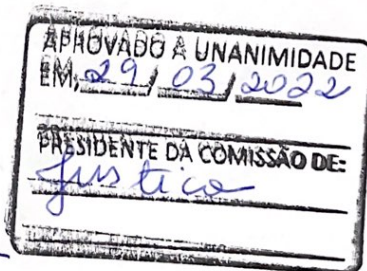 APROVADO A UNANIMIDADE
EM, 29 / 03 / 2022
PRESIDENTE DA COMISSÃO DE:
Justica